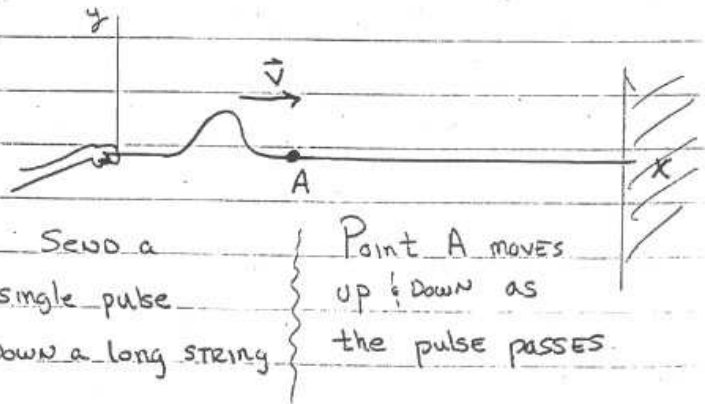 y
V
A
x
Send a
single pulse
down a long string
Point A moves
up & down as
the pulse passes